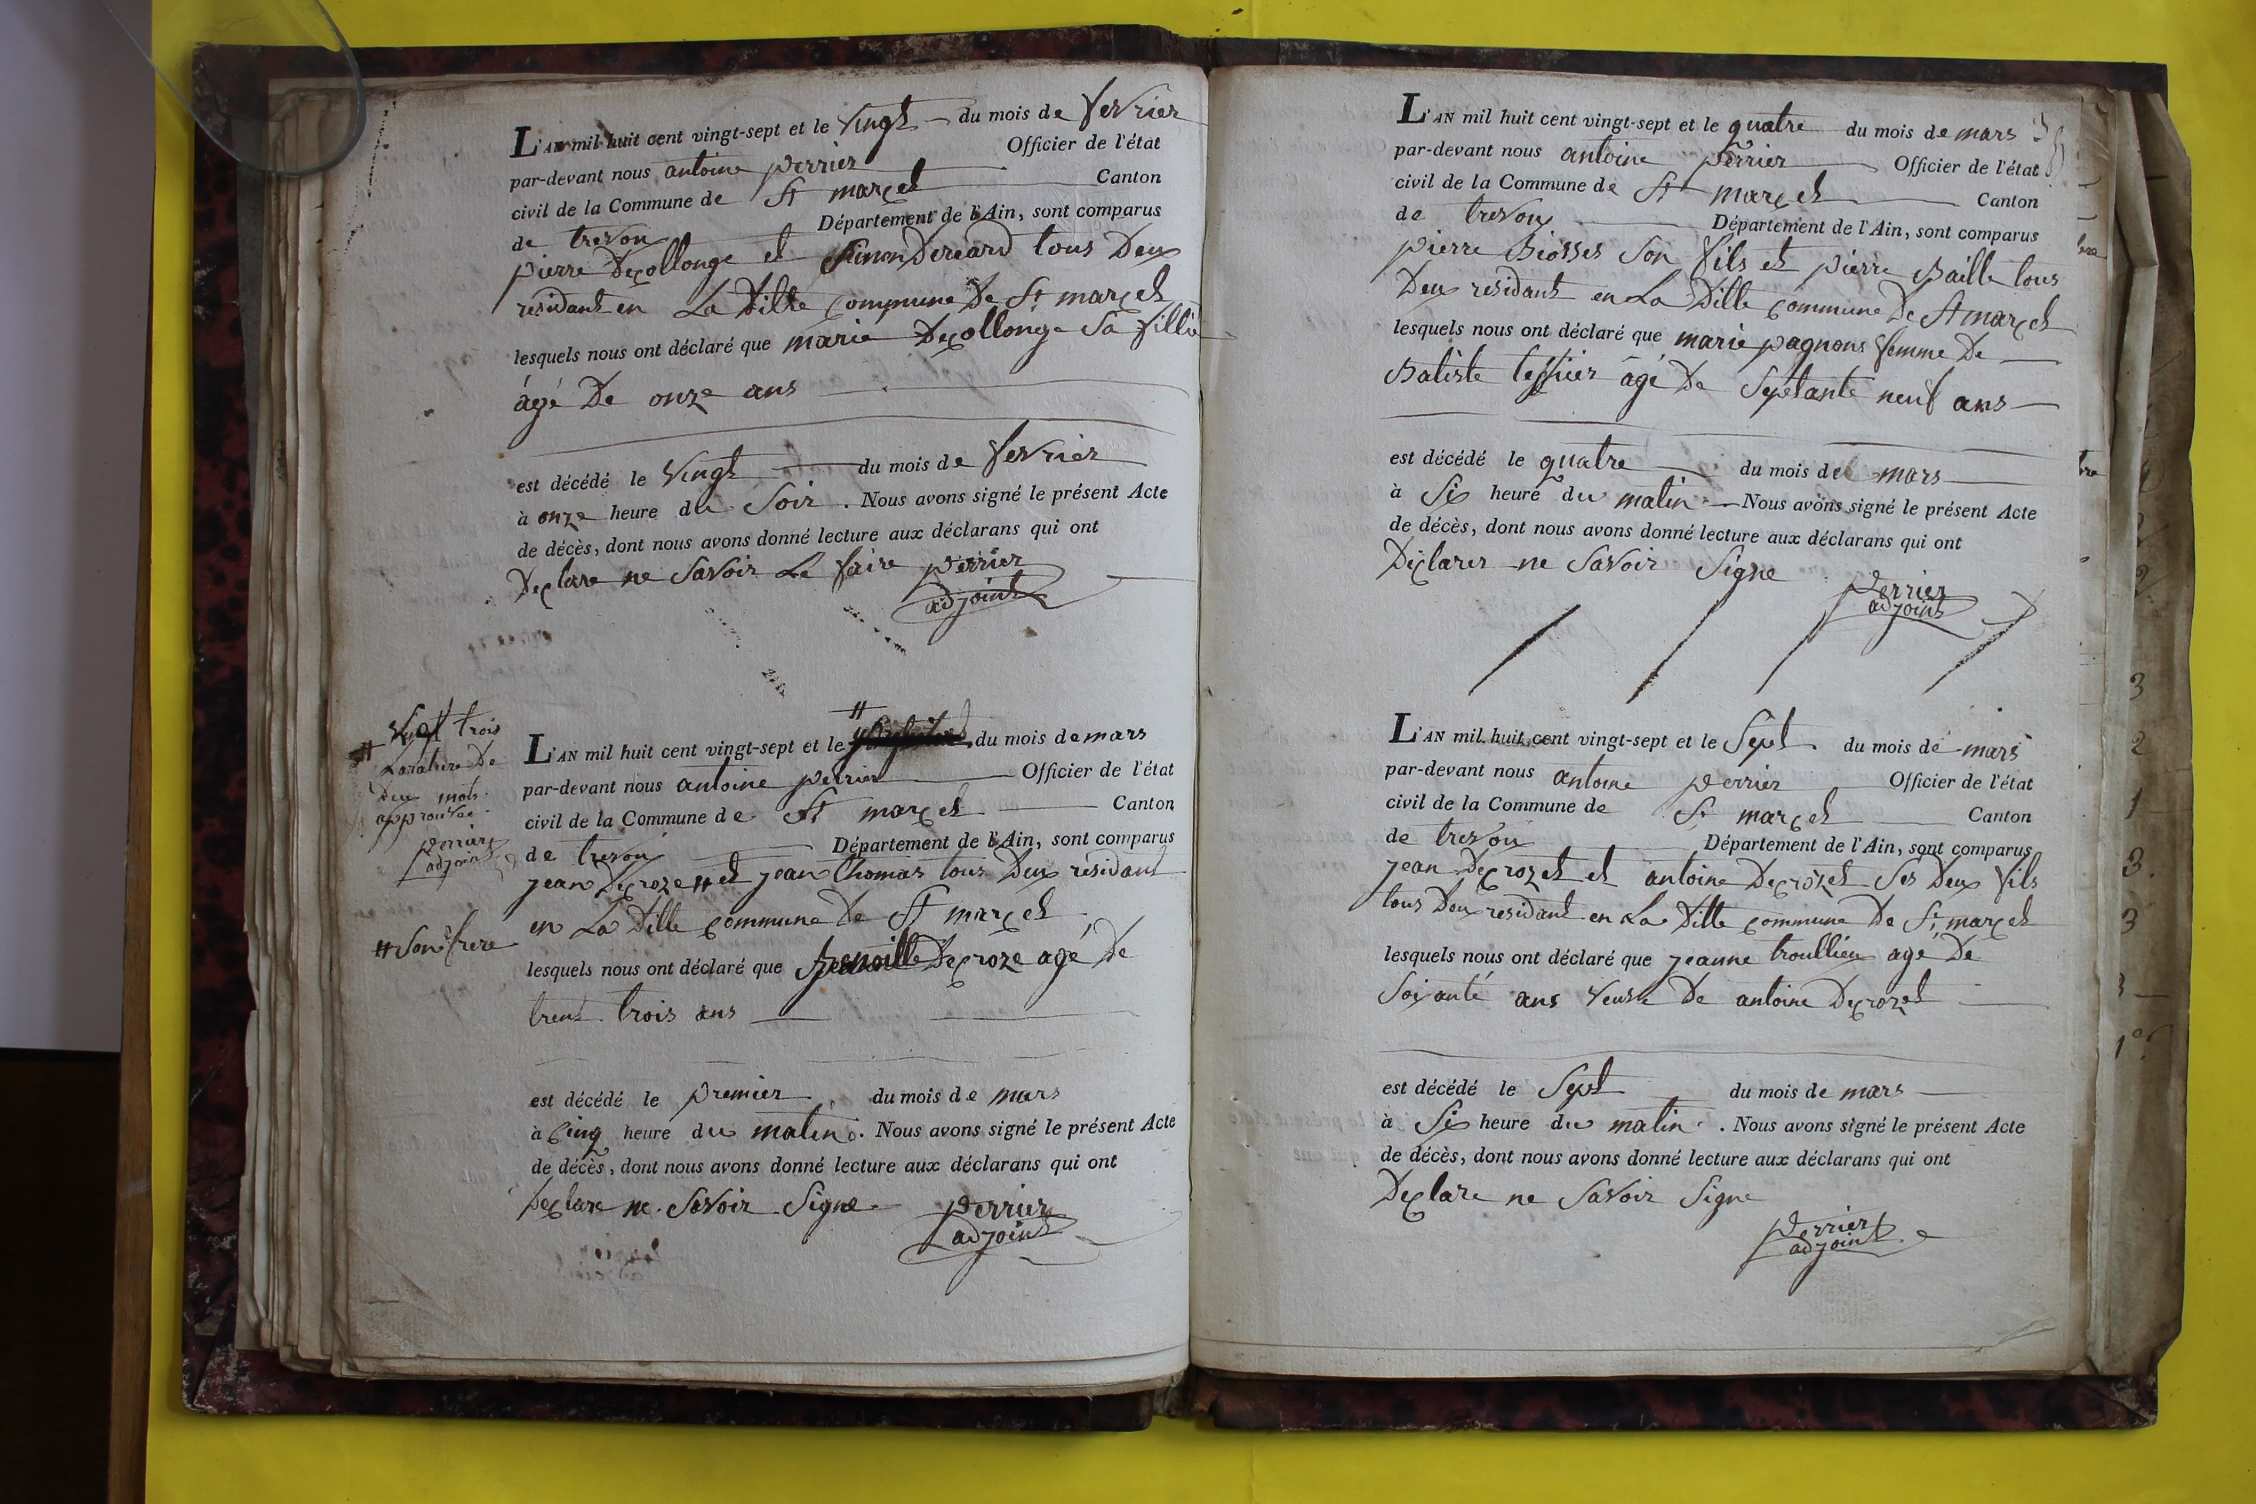 L'AN mil huit cent vingt-sept et le vingt du mois de fevrier
par-devant nous antoine perrier Officier de l'état
civil de la Commune de St marcel Canton
de trevou Département de l'Ain, sont comparus
pierre Decollonge et tous Deux
residant en La Ditte commune De St marcel
lesquels nous ont déclaré que marie Decollonge Sa fillie
âgé De onze ans
est décédé le vingt du mois de fevrier
à onze heure du Soir. Nous avons signé le présent Acte
de décès, dont nous avons donné lecture aux déclarans qui ont
Declare ne Savoir Le faire perrier
adjoint
# vingt trois
La rature De
Deux mots
approuvee
perrier
adjoint
# Son frere
L'AN mil huit cent vingt-sept et le # du mois de mars
par-devant nous antoine perrier Officier de l'état
civil de la Commune de St marcel Canton
de trevou Département de l'Ain, sont comparus
jean Decroze # et jean thomas tous Deux résidant
en La Ditte commune De St marcel
lesquels nous ont déclaré que Decroze agé De
trent trois ans
est décédé le premier du mois de mars
à cinq heure du matin. Nous avons signé le présent Acte
de décès, dont nous avons donné lecture aux déclarans qui ont
Declare ne Savoir Signe perrier
adjoint
L'AN mil huit cent vingt-sept et le quatre du mois de mars
par-devant nous antoine perrier Officier de l'état
civil de la Commune de St marcel Canton
de trevou Département de l'Ain, sont comparus
pierre Biosses Son fils et pierre Baille tous
Deux residant en La Ditte commune De St marcel
lesquels nous ont déclaré que marie pagnons femme De
Batiste tessier âgé De Septante neuf ans
est décédé le quatre du mois de mars
à Six heure du matin Nous avons signé le présent Acte
de décès, dont nous avons donné lecture aux déclarans qui ont
Declarer ne Savoir Signe perrier
adjoint
L'AN mil huit cent vingt-sept et le Sept du mois de mars
par-devant nous antoine perrier Officier de l'état
civil de la Commune de St marcel Canton
de trevou Département de l'Ain, sont comparus
jean Decrozet et antoine Decrozet Ses Deux fils
tous Deux residant en La Ditte commune De St marcel
lesquels nous ont déclaré que jeanne troullieu agé De
Soixante ans veuve De antoine Decrozet
est décédé le Sept du mois de mars
à Six heure du matin. Nous avons signé le présent Acte
de décès, dont nous avons donné lecture aux déclarans qui ont
Declare ne Savoir Signe
perrier
adjoint
3
2
1
3.
3
3